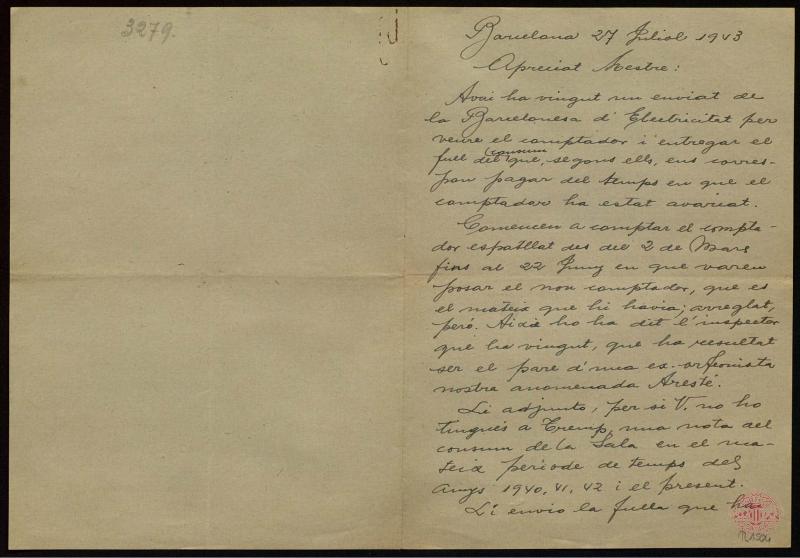 3279.
Barcelona 27 Juliol 1943
Apreciat Mestre:
Avui ha vingut un enviat de
la Barcelonesa d'Electricitat per
veure el comptador i entregar el
consum
full del que, segons ells, ens corres-
pon pagar del temps en que el
comptador ha estat avariat.
Comencen a comptar el compta-
dor espatllat des del 2 de Mars
fins al 22 Juny en que varen
posar el nou comptador, que es
el mateix que hi havia; arreglat,
però. Aixà ho ha dit l'inspector
que ha vingut, que ha resultat
ser el pare d'una ex-orfeonista
nostra anomenada Aresté.
Li adjunto, per si V. no ho
tingués a Tremp, una nota del
consum de la Sala en el ma-
teix periode de temps dels
anys 1940, 41, 42 i el present.
Li envio la fulla que ha